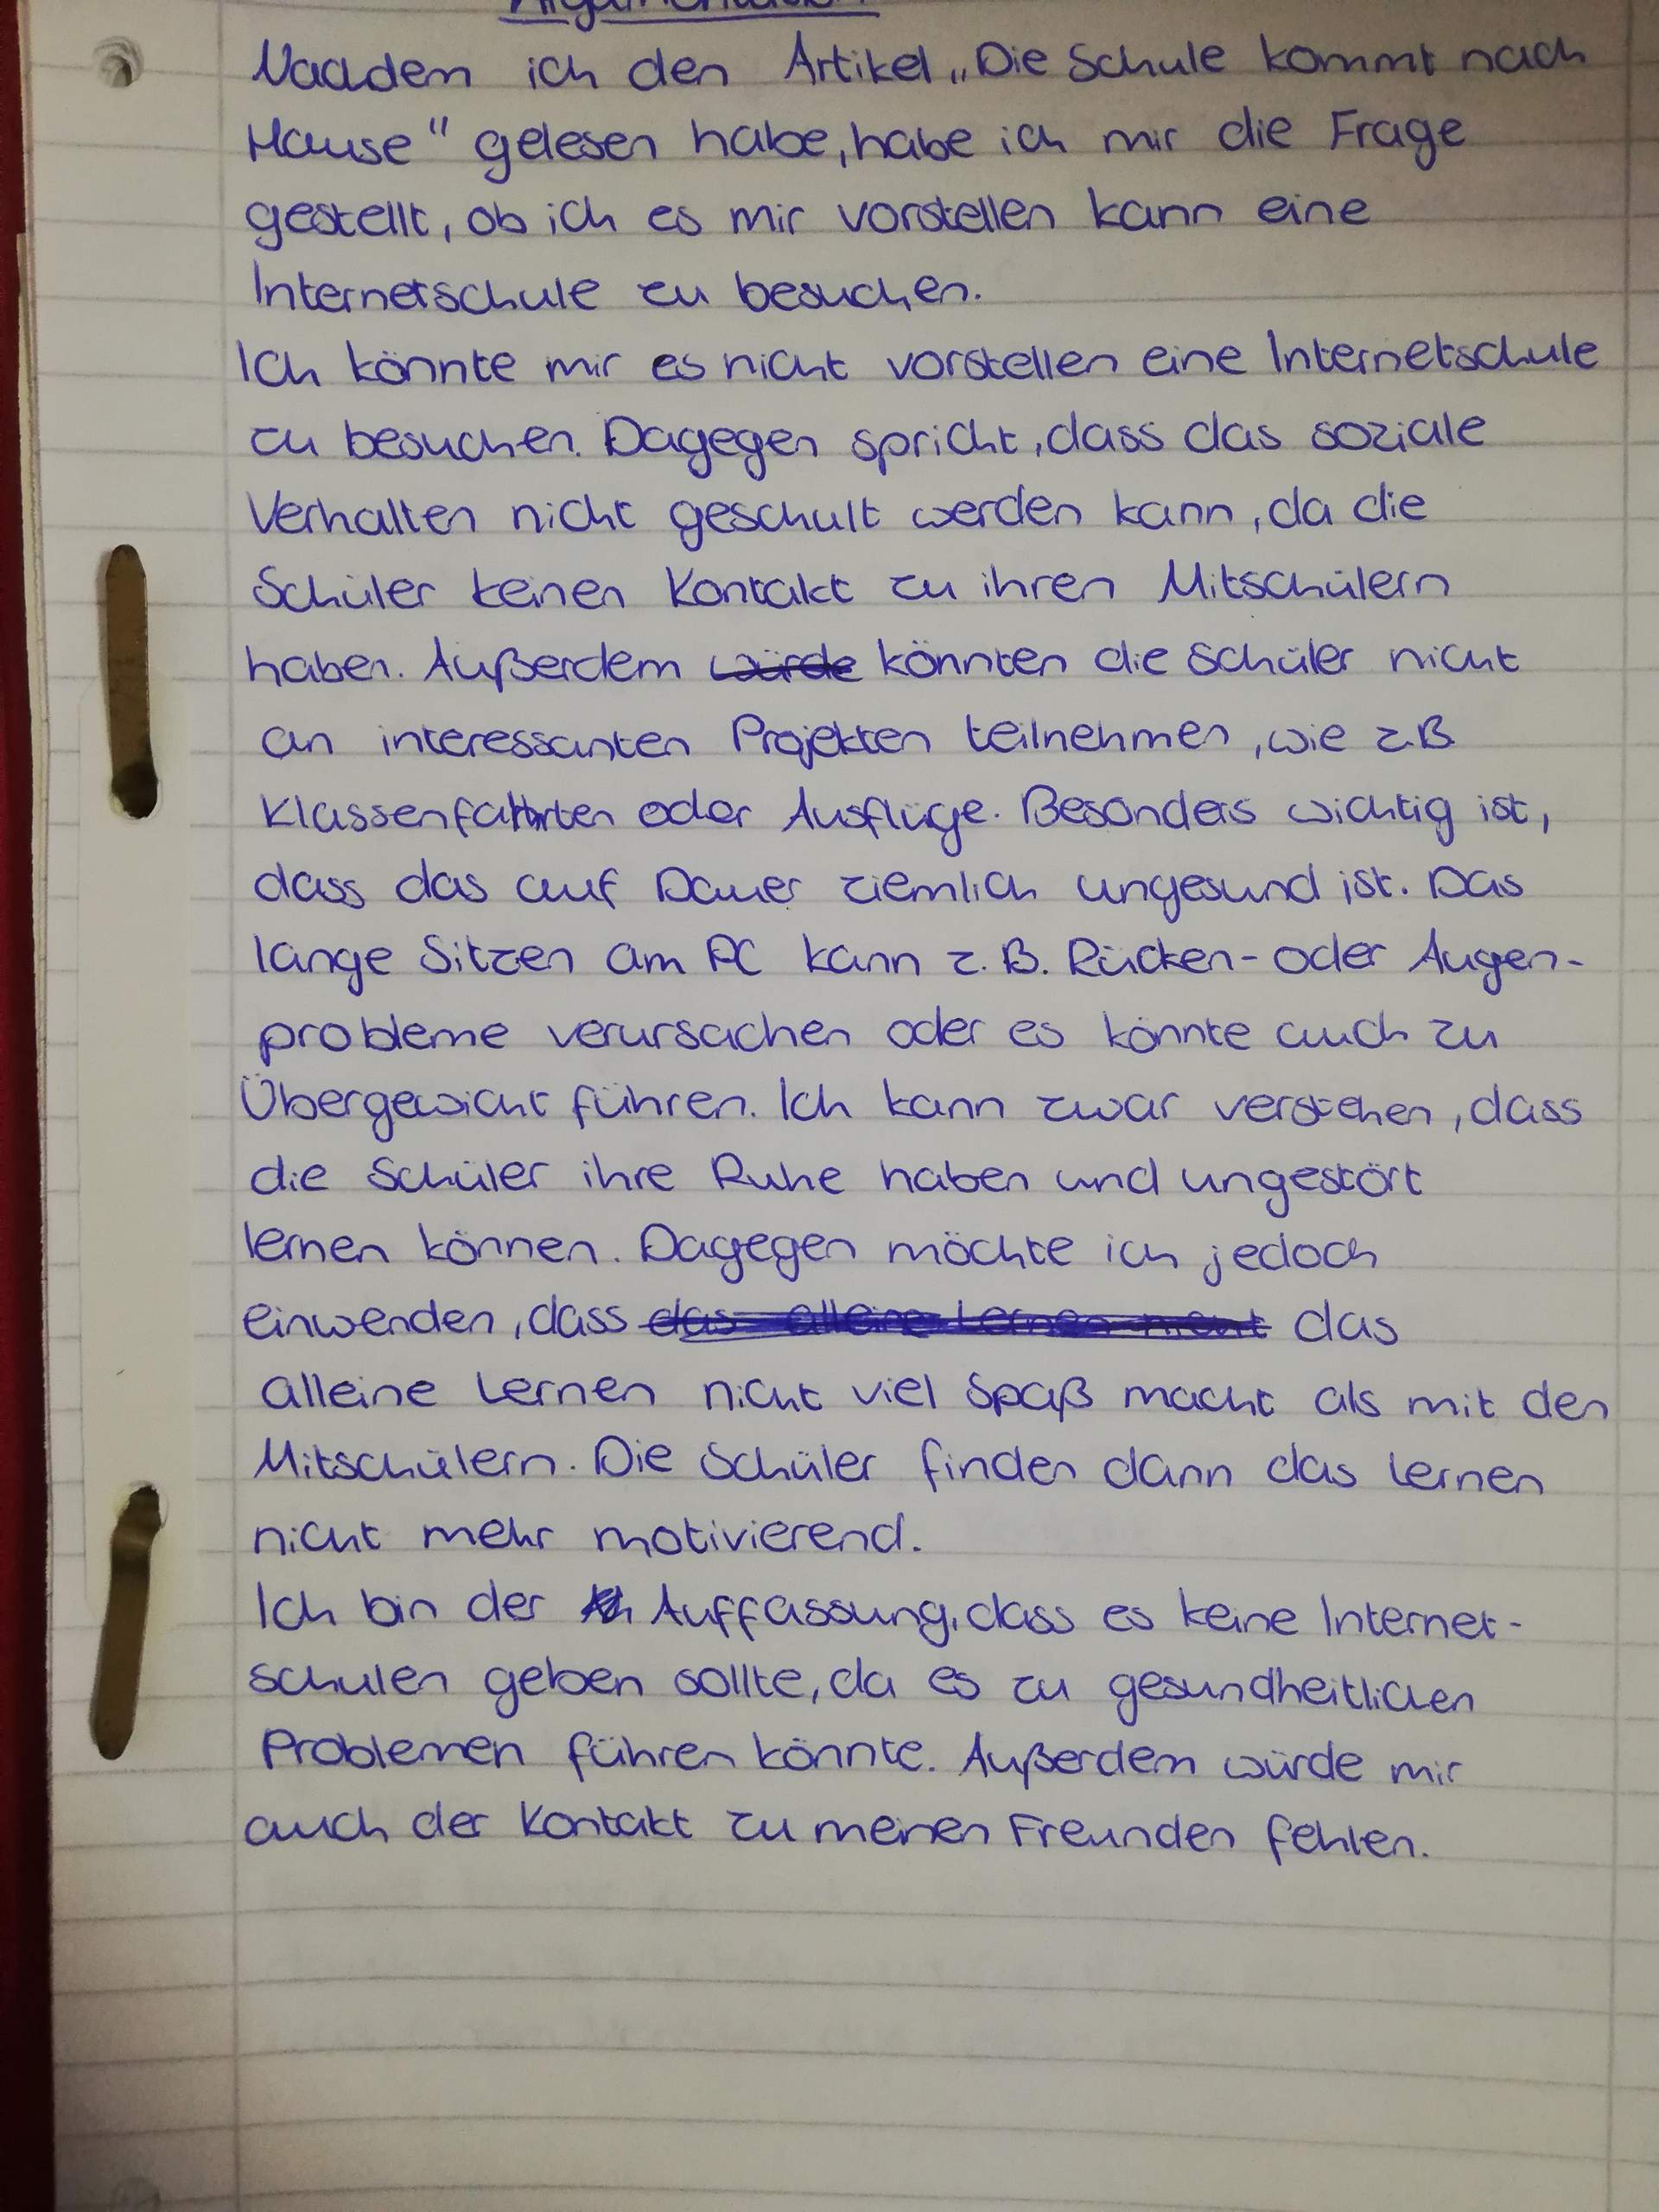 Argumentation
Nachdem ich den Artikel „Die Schule kommt nach
Hause" gelesen habe, habe ich mir die Frage
gestellt, ob ich es mir vorstellen kann eine
Internetschule zu besuchen.
Ich könnte mir es nicht vorstellen eine Internetschule
zu besuchen. Dagegen spricht, dass das soziale
Verhalten nicht geschult werden kann, da die
Schüler keinen Kontakt zu ihren Mitschülern
haben. Außerdem würde könnten die Schüler nicht
an interessanten Projekten teilnehmen, wie z.B
Klassenfahrten oder Ausflüge. Besonders wichtig ist,
dass das auf Dauer ziemlich ungesund ist. Das
lange Sitzen am PC kann z.B. Rücken- oder Augen-
probleme verursachen oder es könnte auch zu
Übergewicht führen. Ich kann zwar verstehen, dass
die Schüler ihre Ruhe haben und ungestört
lernen können. Dagegen möchte ich jedoch
einwenden, dass das alleine Lernen nicht das
alleine Lernen nicht viel Spaß macht als mit den
Mitschülern. Die Schüler finden dann das Lernen
nicht mehr motivierend.
Ich bin der Auffassung, dass es keine Internet-
schulen geben sollte, da es zu gesundheitlichen
Problemen führen könnte. Außerdem würde mir
auch der Kontakt zu meinen Freunden fehlen.